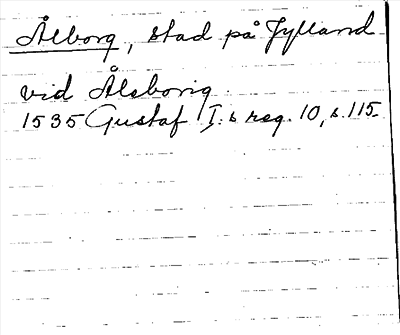 Ålborg, stad på Jylland
vid Ålsborig.
1535 Gustaf I:s reg. 10, s. 115.